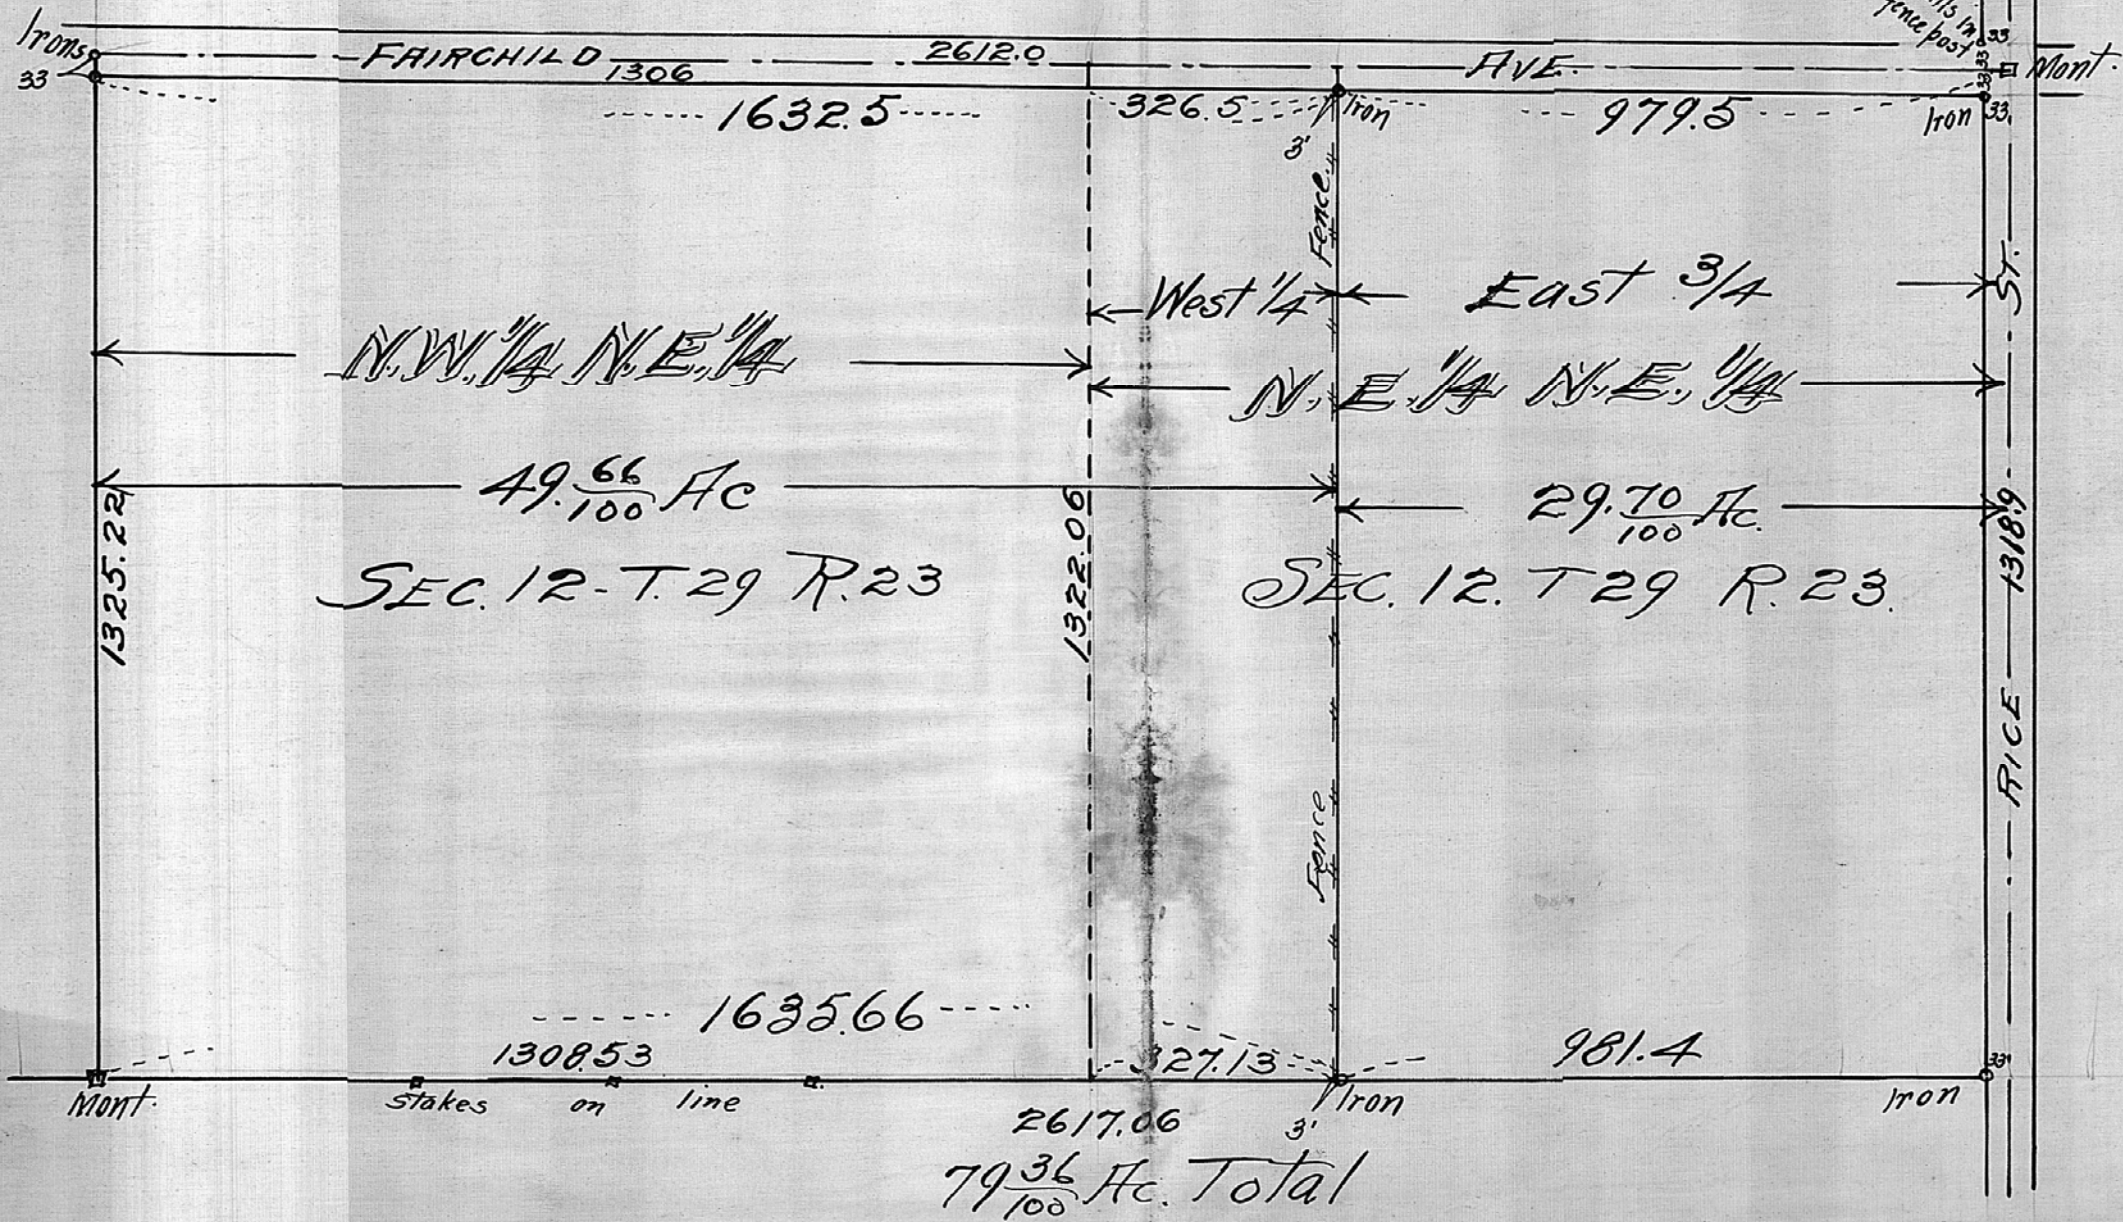 Irons
33
FAIRCHILD 1306 2612.0 AVE.
fence post
33
33
33
Mont.
1632.5 326.5 Iron 979.5 Iron 33
3'
Fence
West 1/4 East 3/4
N.W. 1/4 N.E. 1/4
N.E. 1/4 N.E. 1/4
49. 66/100 Ac
29. 70/100 Ac.
SEC. 12 - T. 29 R. 23
SEC. 12. T 29 R. 23.
1325.22
1322.06
RICE 1318.9 ST.
Fence
1635.66
1308.53 327.13 981.4 33'
Mont. stakes on line Iron Iron
3'
2617.06
79 36/100 Ac. Total